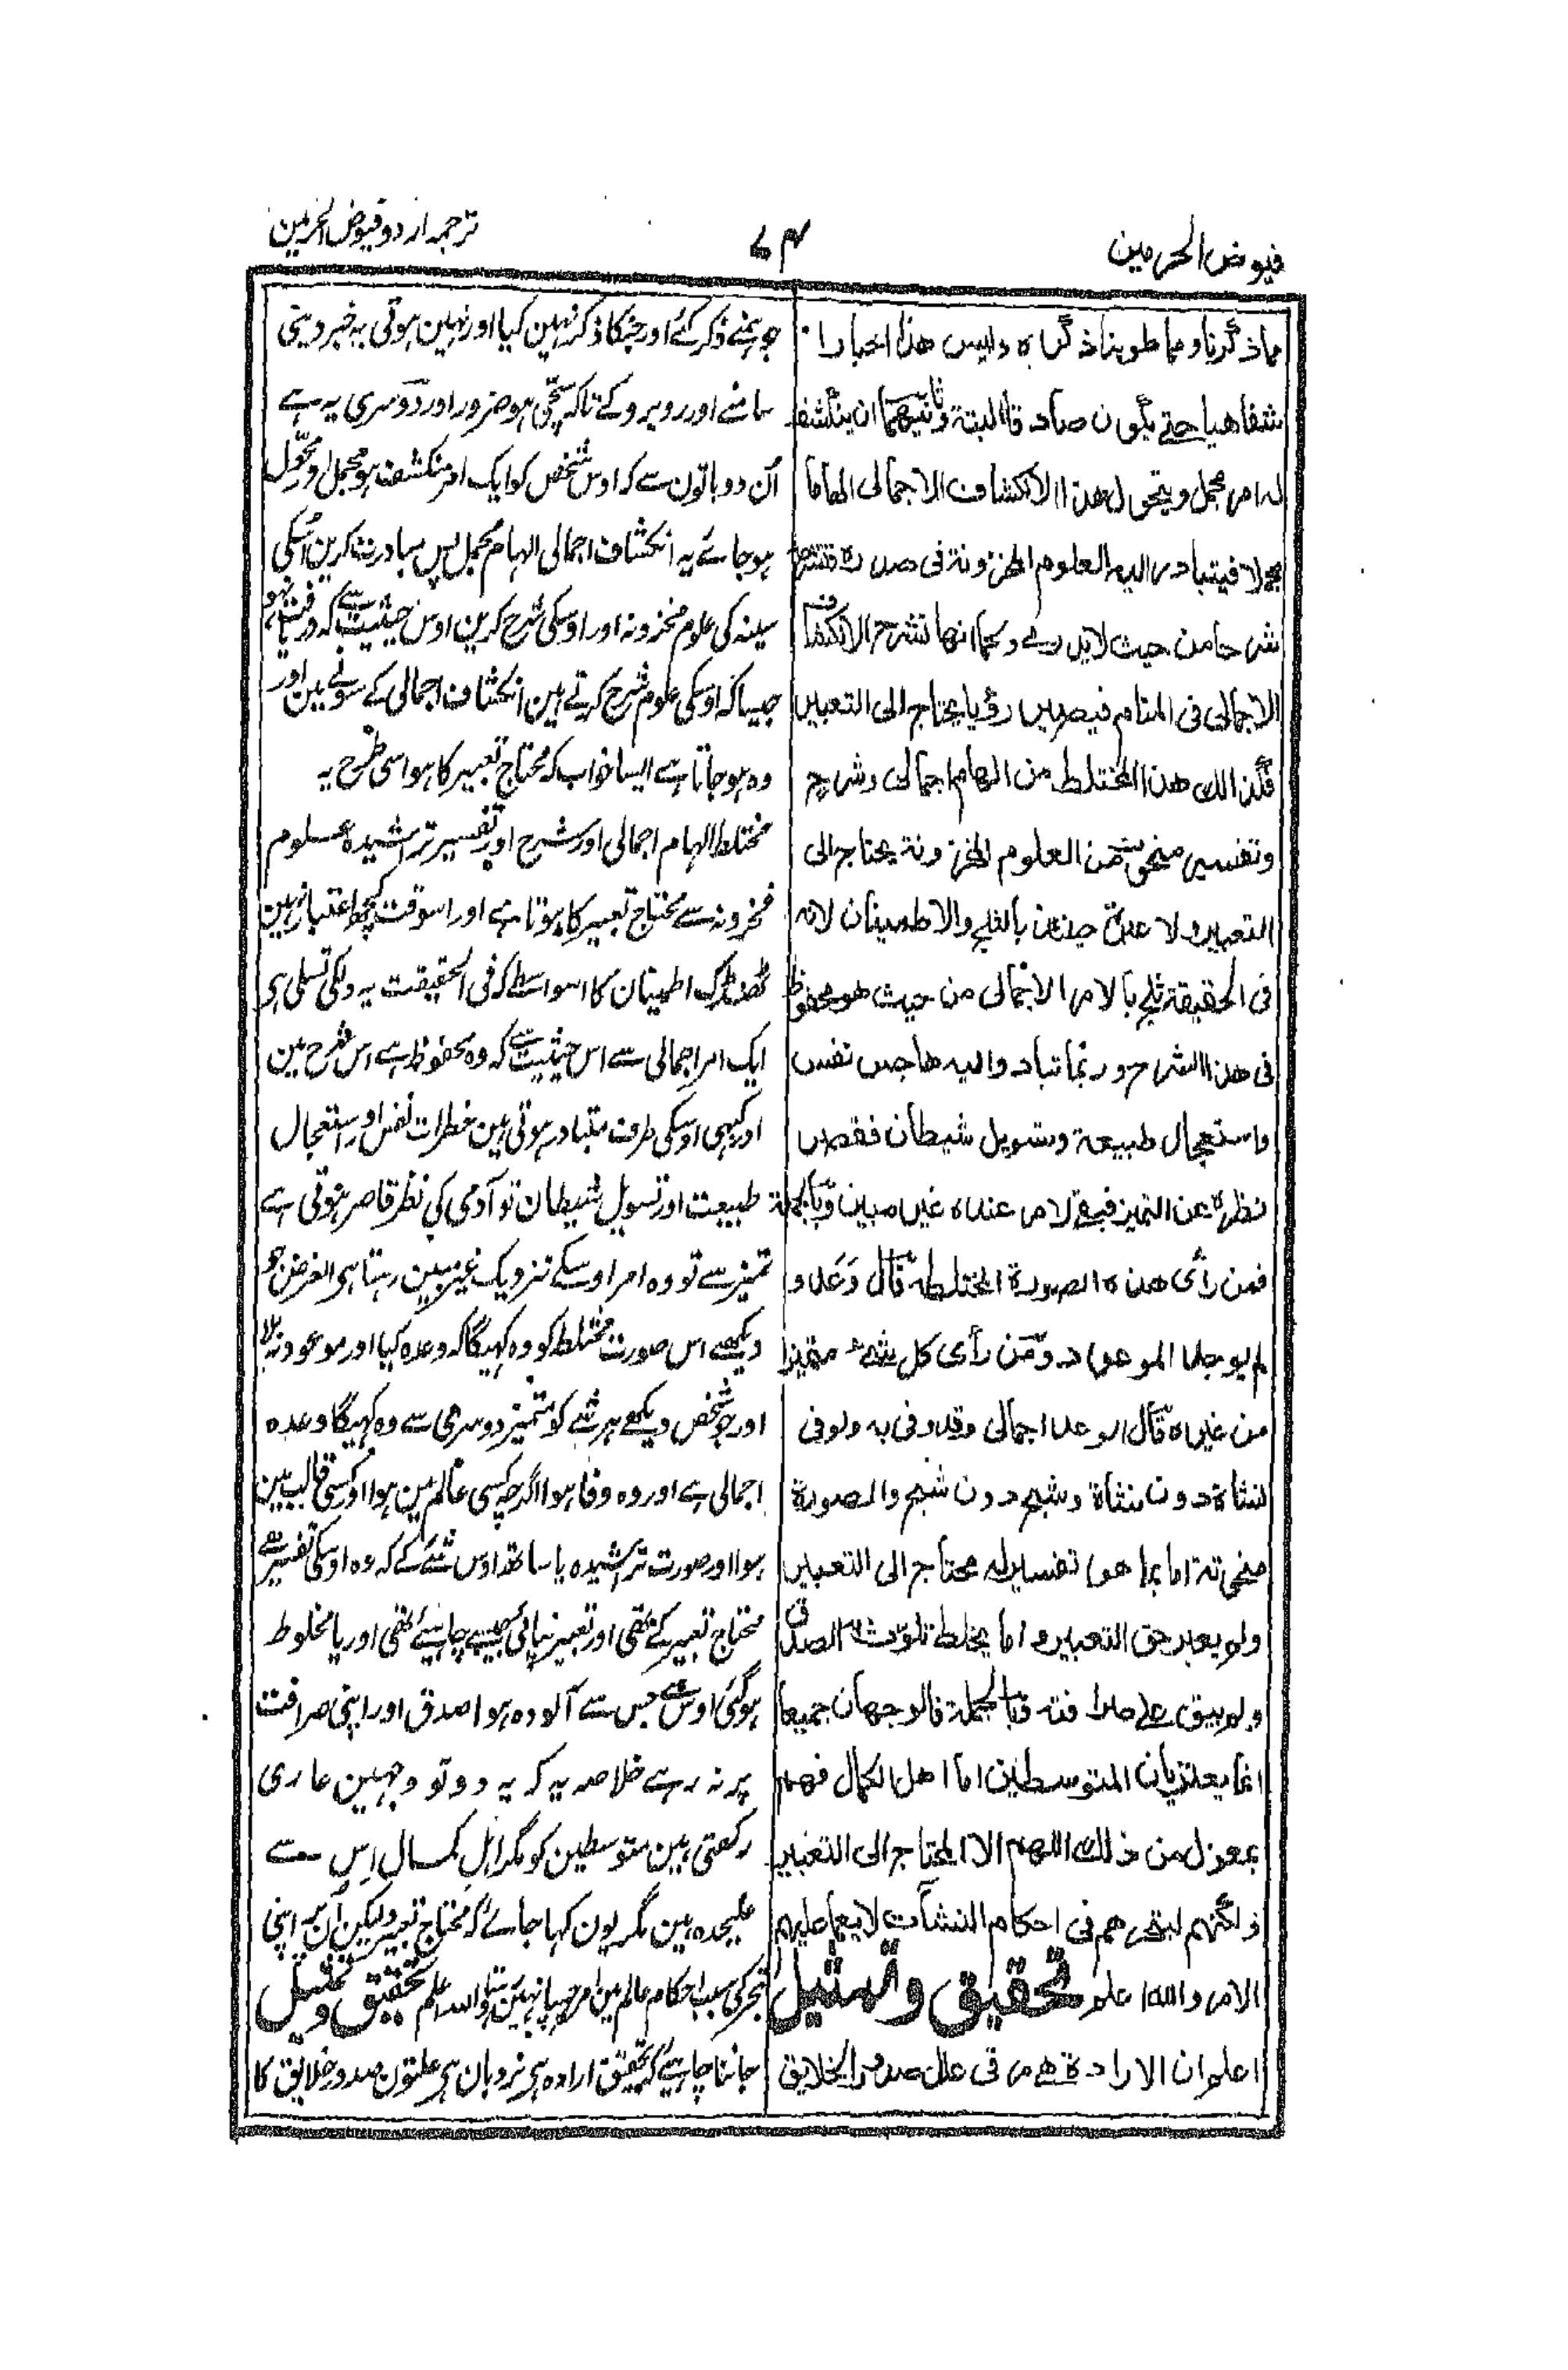 فيوض الحرمين
٧٤
ترجمہ اردو فیوض الحرمین
مما ذكرنا ومما طوينا ذكراه وليس هذا اخبارا
شفاهيا حتے يكون صادقا البتة وثانيهما ان ينكشف
له امر مجمل ويتحول هذا الانكشاف الاجمالى الهاما
مجملا فيتبادر اليه العلوم المخزونة فى صدره فتشرحها
شرحا من حيث لا يدرے وكما انها تشرح الانكشاف
الاجمالى فى المنام فيصير رؤيا يحتاج الى التعبير
فكذالك هذا المختلط من الهام اجمالى وشرح
وتفسير منحوت من العلوم المخزونة يحتاج الى
التعبير ولا عبرة حينئذ بالثلج والاطمينان لانه
فى الحقيقة ثلج بالامر الاجمالى من حيث هو محفوظ
فى هذا الشرح وربما تبادر اليه هاجس نفس
واستعجال طبيعة وتسويل شيطان فقصر
نظره عن التميز فبقے الامر عنده غير مبين وبالجملة
فمن رأى هذه الصورة المختلطة قال وعد و
لم يوجد الموعود ومن رأى كل شئ متميزا
من غيره قال الوعد اجمالى وقد وفى به ولو فى
نشاة دون نشاة وشبح دون شبح والصورة
منحوتة اما بما هو تفسير له محتاج الى التعبير
ولم يعبر حق التعبير واما بخلط تلوث به الصدق
ولم يبق علے صرافته فبالجملة فالوجهان جميعا
انما يعتريان المتوسطين اما اهل الكمال فهم
بمعزل من ذلك اللهم الا المحتاج الى التعبير
ولكنهم لتبحرهم فى احكام النشآت لا يعما عليهم
الامر والله اعلم تحقيق وتمثيل
اعلم ان الارادة هے مرقى علل صدور الخلايق
جو ہمنے ذکر کئے اور جنکا ذکر نہین کیا اور نہین ہوتی یہ خبر دیتی
سامنے اور روبرو کے تاکہ سچی ہو ضرور اور دوسری یہ ہے
اُن دو باتون سے کہ اوس شخص کو ایک امر منکشف ہو مجمل و محول
ہو جائے یہ انکشاف اجمالی الہام مجمل پس مبادرت کرین اُسکی
سینہ کی علوم مخزونہ اور اوسکی شرح کرین اوس حیثیت سے کہ دریافت نہو
جیسا کہ اوسکی علوم شرح کرتے ہین انکشاف اجمالی کے سونے مین اور
وہ ہو جاتا ہے ایسا خواب کہ محتاج تعبیر کا ہو اسی طرح یہ
مختلط الہام اجمالی اور شرح اور تفسیر تراشیدہ علوم
مخزونہ سے محتاج تعبیر کا ہوتا ہے اور اسوقت کچھ اعتبار نہین
ٹھنڈک اطمینان کا اسواسطے کہ فی الحقیقت یہ دلکی تسلی ہی
ایک امر اجمالی سے اس حیثیت سے کہ وہ محفوظ ہے اس شرح مین
اور کبہی اوسکی طرف متبادر ہوتی ہین خطرات نفس اور استعجال
طبیعت اور تسویل شیطان تو آدمی کی نظر قاصر ہوتی ہے
تمیز سے تو وہ امر اوسکے نزدیک غیر مبین رہتا ہی الغرض جو
دیکھے اس صورت مختلط کو وہ کہیگا کہ وعدہ کیا اور موعود نہ ملا
اور جو شخص دیکھے ہر شے کو متمیز دوسری سے وہ کہیگا وعدہ
اجمالی ہے اور وہ وفا ہوا اگرچہ کسی عالم مین ہوا اور کسی قالب مین
ہوا اور صورت تراشیدہ یا ساتھ اوس شے کے کہ وہ اوسکی تفسیر ہے
محتاج تعبیر کے تھی اور تعبیر نپائی جیسے چاہیئے تھی اور یا مخلوط
ہوگئی اوس شے جس سے آلودہ ہوا صدق اور اپنی صرافت
پر نہ رہے خلاصہ یہ کہ یہ دو تو وجہین عاری
رکھتی ہین متوسطین کو مگر اہل کمال اِس سے
علیحدہ ہین مگر یون کہا جائے کہ محتاج تعبیر ولیکن اُن پر اپنی
تبحر کی سبب احکام عالم مین امر چہپا نہین رہتا واللہ اعلم تحقیق و تمثیل
جاننا چاہیئے کہ تحقیق ارادہ ہی نردبان ہی علتون صدور خلایق کا